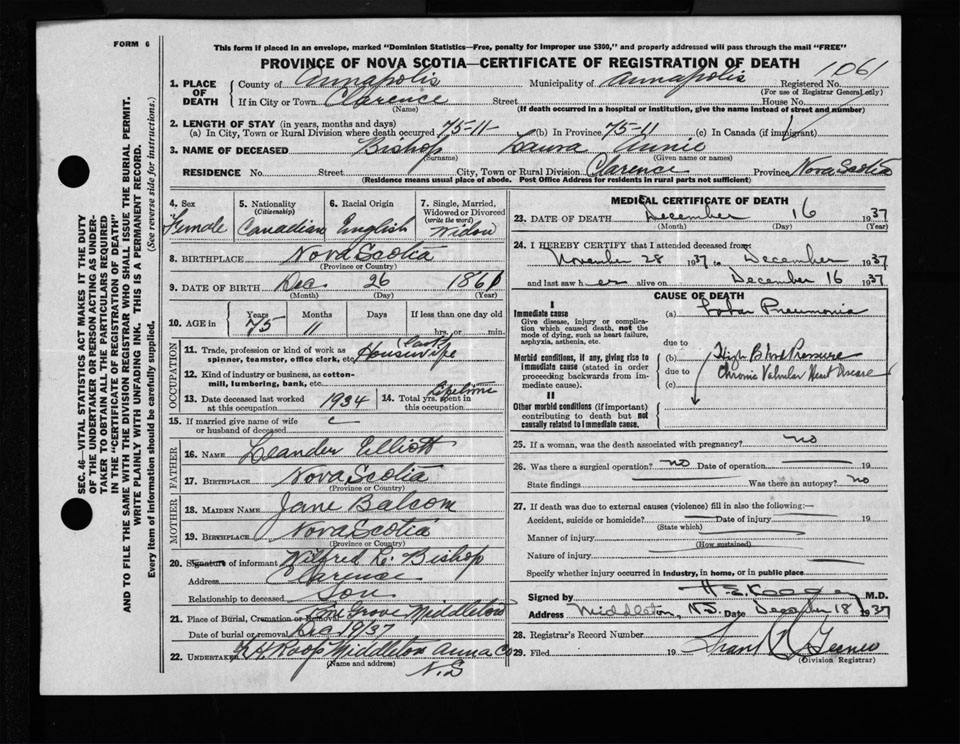 FORM 6
This form if placed in an envelope, marked "Dominion Statistics—Free, penalty for improper use $300," and properly addressed will pass through the mail "FREE"
PROVINCE OF NOVA SCOTIA—CERTIFICATE OF REGISTRATION OF DEATH
1. PLACE OF DEATH
County of Annapolis Municipality of Annapolis Registered No. 1061
(For use of Registrar General only)
If in City or Town Clarence Street House No.
(Name) (If death occurred in a hospital or institution, give the name instead of street and number)
2. LENGTH OF STAY (in years, months and days)
(a) In City, Town or Rural Division where death occurred 75-11- (b) In Province 75-11 (c) In Canada (if immigrant)
3. NAME OF DECEASED Bishop Laura Annie
(Surname) (Given name or names)
RESIDENCE No. Street City, Town or Rural Division Clarence Province Nova Scotia
(Residence means usual place of abode. Post Office Address for residents in rural parts not sufficient)
4. Sex Female
5. Nationality (Citizenship) Canadian
6. Racial Origin English
7. Single, Married, Widowed or Divorced (write the word) Widow
8. BIRTHPLACE Nova Scotia
(Province or Country)
9. DATE OF BIRTH Dec 26 1861
(Month) (Day) (Year)
10. AGE in Years 75 Months 11 Days If less than one day old hrs. or min.
OCCUPATION
11. Trade, profession or kind of work as spinner, teamster, office clerk, etc. Housewife
12. Kind of industry or business, as cotton-mill, lumbering, bank, etc.
13. Date deceased last worked at this occupation 1934
14. Total yrs. spent in this occupation Lifetime
15. If married give name of wife or husband of deceased
FATHER
16. NAME Leander Elliott
17. BIRTHPLACE Nova Scotia
(Province or Country)
MOTHER
18. MAIDEN NAME Jane Balcom
19. BIRTHPLACE Nova Scotia
(Province or Country)
20. Signature of informant Wilfred R. Bishop
Address Clarence
Relationship to deceased Son
21. Place of Burial, Cremation or Removal Pine Grove Middleton
Date of burial or removal Dec 1937
22. UNDERTAKER Roop Middleton Anna Co
(Name and address) N.S
MEDICAL CERTIFICATE OF DEATH
23. DATE OF DEATH December 16 1937
(Month) (Day)
24. I HEREBY CERTIFY that I attended deceased from
November 28 1937 to December 1937
and last saw her alive on December 16 1937
CAUSE OF DEATH
I
Immediate cause
Give disease, injury or complication which caused death, not the mode of dying, such as heart failure, asphyxia, asthenia, etc.
(a) Lobar Pneumonia
due to
Morbid conditions, if any, giving rise to immediate cause (stated in order proceeding backwards from immediate cause).
(b) High Blood Pressure
due to Chronic Valvular Heart Disease
(c)
II
Other morbid conditions (if important) contributing to death but not causally related to immediate cause.
25. If a woman, was the death associated with pregnancy? no
26. Was there a surgical operation? no Date of operation 19
State findings Was there an autopsy? no
27. If death was due to external causes (violence) fill in also the following:—
Accident, suicide or homicide? Date of injury 19
(State which)
Manner of injury
(How sustained)
Nature of injury
Specify whether injury occurred in industry, in home, or in public place
Signed by M.D.
Address Middleton, N.S. Date December 18 1937
28. Registrar's Record Number
29. Filed 19
(Division Registrar)
SEC. 46—VITAL STATISTICS ACT MAKES IT THE DUTY
OF THE UNDERTAKER OR PERSON ACTING AS UNDER-
TAKER TO OBTAIN ALL THE PARTICULARS REQUIRED
IN THE "CERTIFICATE OF REGISTRATION OF DEATH"
AND TO FILE THE SAME WITH THE DIVISION REGISTRAR WHO SHALL ISSUE THE BURIAL PERMIT.
WRITE PLAINLY WITH UNFADING INK. THIS IS A PERMANENT RECORD.
Every item of information should be carefully supplied. (See reverse side for instructions.)